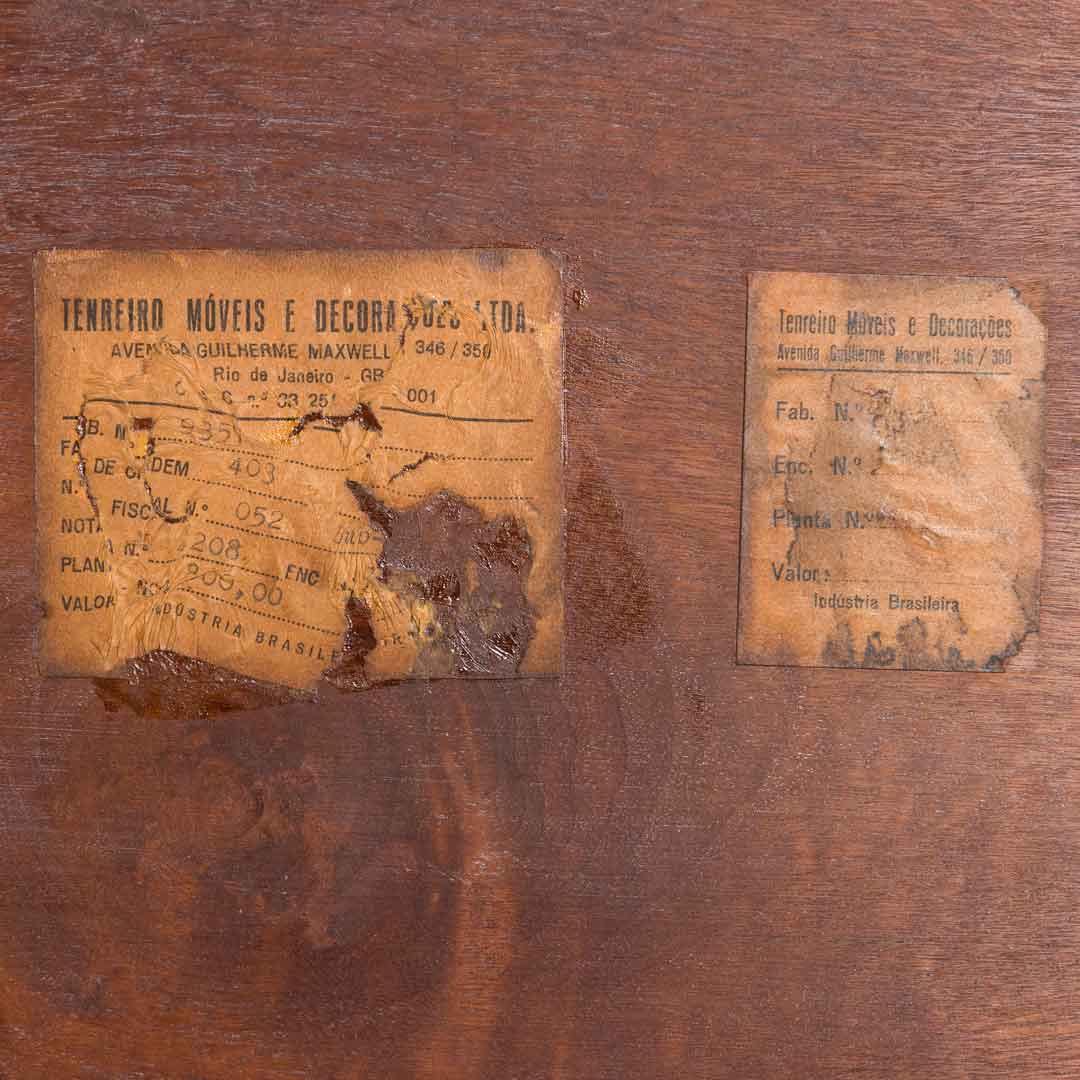 TENREIRO MÓVEIS E DECORAÇÕES LTDA.
AVENIDA GUILHERME MAXWELL 346/350
Rio de Janeiro - GB
C. G. C. n.º 33 25 001
FAB. N.º 935
N.º DE ORDEM 403
NOTA FISCAL N.º 052
PLANTA N.º 208 ENC
VALOR NCr 209,00
INDÚSTRIA BRASILEIRA
Tenreiro Móveis e Decorações
Avenida Guilherme Maxwell, 346/350
Fab. N.º
Enc. N.º
Planta N.º
Valor:
Indústria Brasileira